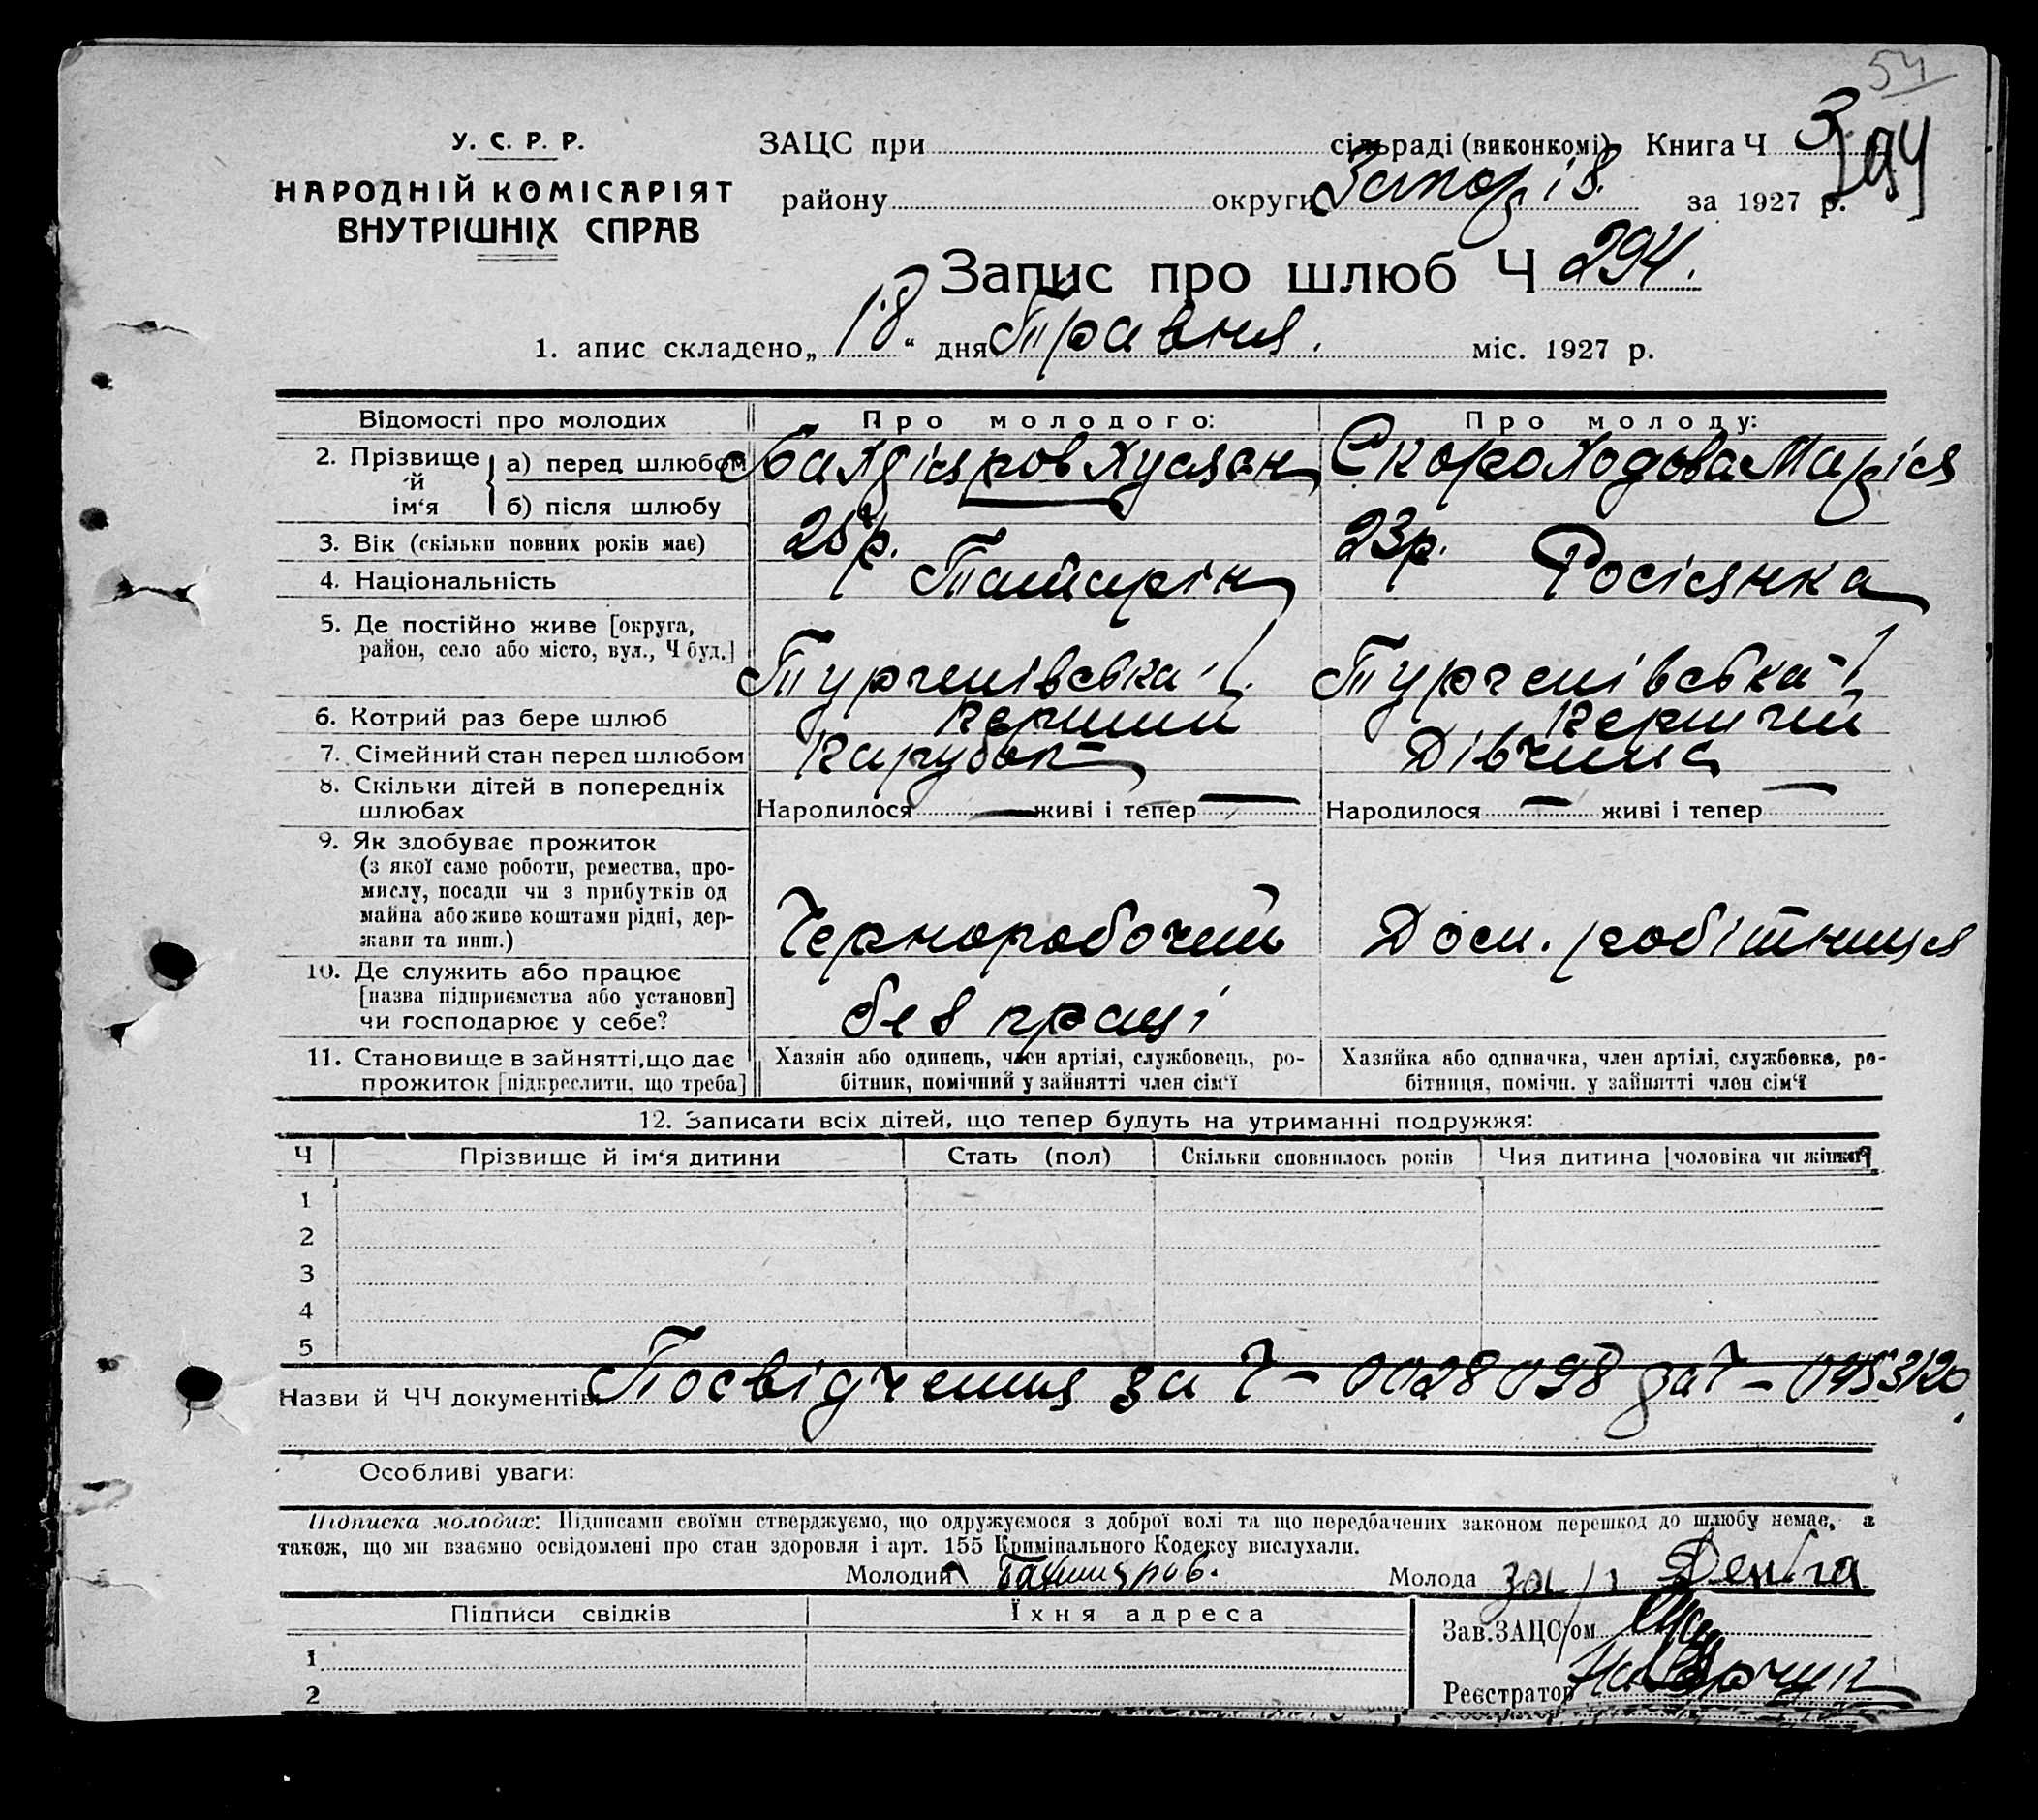 54
У. С. Р. Р.
НАРОДНІЙ КОМІСАРІЯТ
ВНУТРІШНІХ СПРАВ
ЗАЦС при сільраді (виконкомі) Книга Ч 3
294
району округи Запоріз. за 1927 р.
Запис про шлюб Ч 294.
1. апис складено „18“ дня Травня. міс. 1927 р.
Відомості про молодих Про молодого: Про молоду:
2. Прізвище й ім‘я а) перед шлюбом Скороходова Марія
б) після шлюбу
3. Вік (скільки повних років має) 25 р. 23 р.
4. Національність Татарін Росіянка
5. Де постійно живе [округа,
район, село або місто, вул., Ч буд.] Тургенівська 1. Тургенівська - 1
6. Котрий раз бере шлюб перший перший
7. Сімейний стан перед шлюбом Парубок Дівчина
8. Скільки дітей в попередніх
шлюбах Народилося — живі і тепер — Народилося — живі і тепер —
9. Як здобуває прожиток
(з якої саме роботи, ремества, про-
мислу, посади чи з прибутків од
майна або живе коштами рідні, дер-
жави та инш.) Черноробочий Дом. робітниця
10. Де служить або працює
[назва підприємства або установи]
чи господарює у себе? без праці
11. Становище в зайнятті, що дає
прожиток [підкреслити, що треба]
Хазяін або одинець, член артілі, службовець, ро-
бітник, помічний у зайнятті член сім‘ї
Хазяйка або одиначка, член артілі, службовка, ро-
бітниця, помічн. у зайнятті член сім‘ї
12. Записати всіх дітей, що тепер будуть на утриманні подружжя:
Ч Прізвище й ім‘я дитини Стать (пол) Скільки сповнилось років Чия дитина [чоловіка чи жінки]
1
2
3
4
5
Назви й ЧЧ документів: Посвідчення за Ч - 0028098 за Ч - 0453120.
Особливі уваги:
Підписка молодих: Підписами своїми стверджуємо, що одружуємося з доброї волі та що передбачених законом перешкод до шлюбу немає, а
також, що ми взаємно освідомлені про стан здоровля і арт. 155 Кримінального Кодексу вислухали.
Молодий Молода
Підписи свідків Їхня адреса
Зав.ЗАЦС‘ом
1
Реєстратор
2